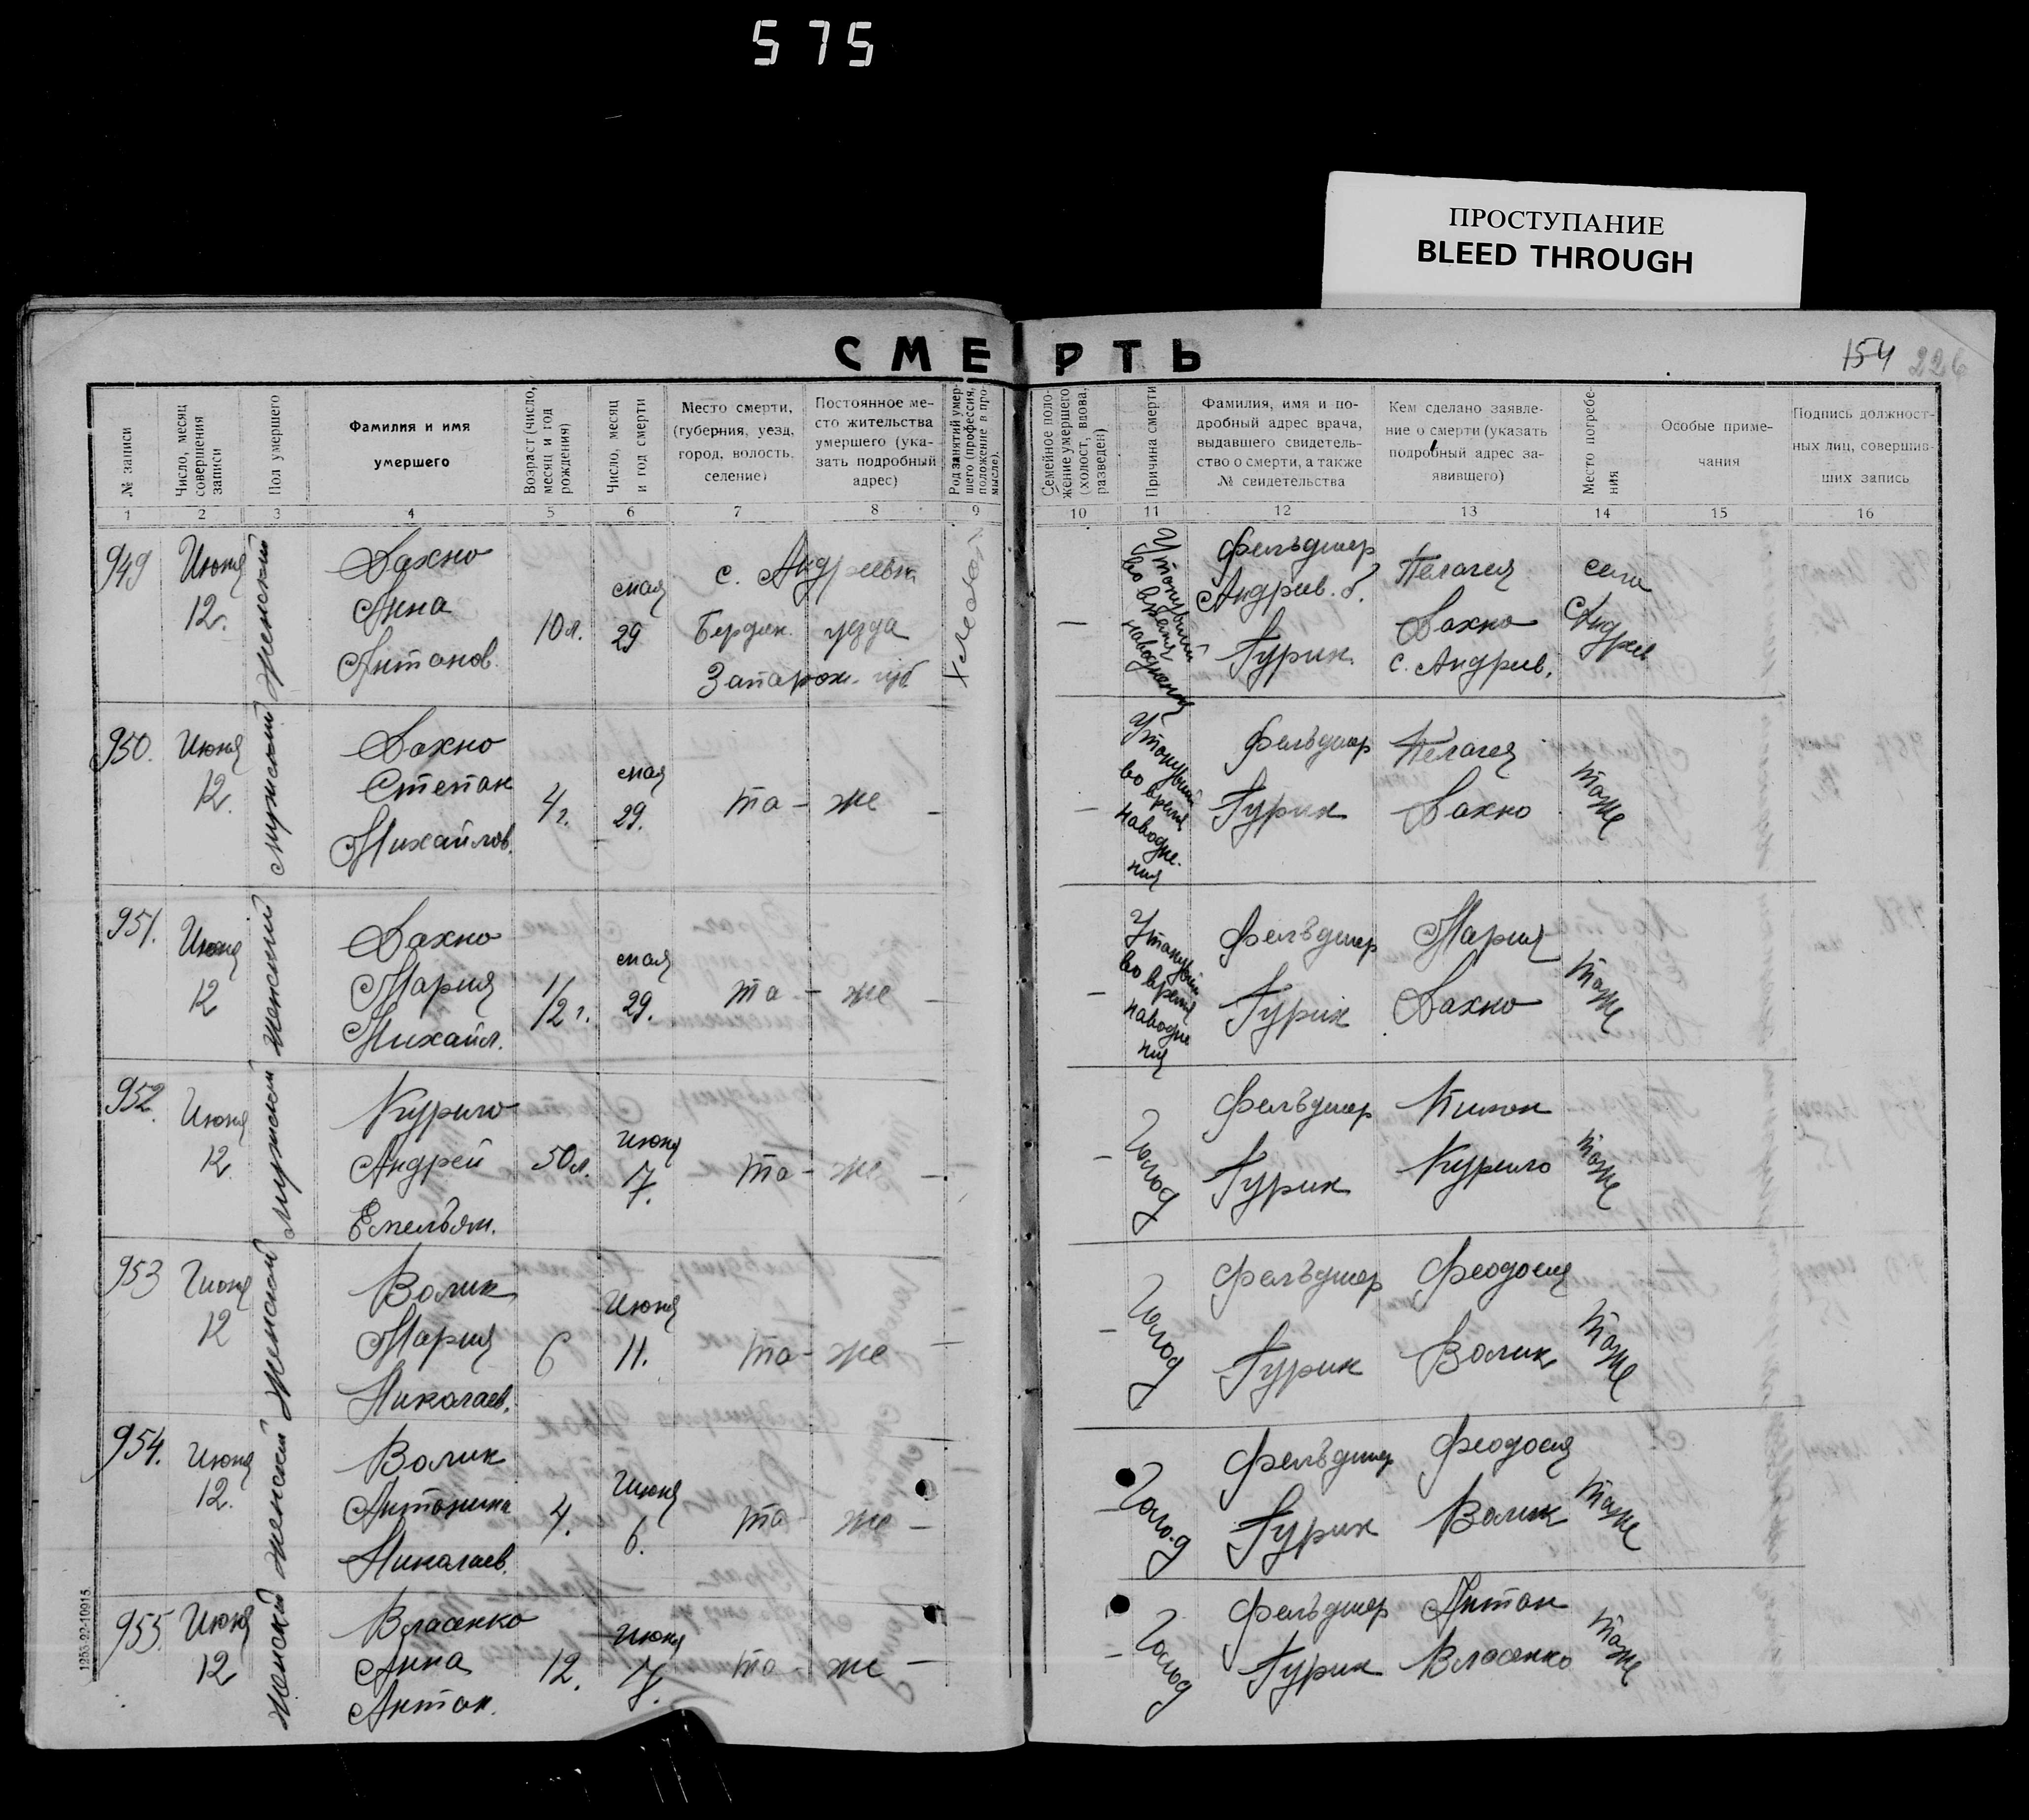 575
ПРОСТУПАНИЕ
BLEED THROUGH
СМЕРТЬ
154 226
№ записи
Число, месяц совершения записи
Пол умершего
Фамилия и имя умершего
Возраст (число, месяц и год рождения)
Число, месяц и год смерти
Место смерти, (губерния, уезд, город, волость, селение)
Постоянное место жительства умершего (указать подробный адрес)
Род занятий умершего (профессия, положение в промысле).
Семейное положение умершего (холост, вдова, разведен)
Причина смерти
Фамилия, имя и подробный адрес врача, выдавшего свидетельство о смерти, а также № свидетельства
Кем сделано заявление о смерти (указать подробный адрес заявившего)
Место погребения
Особые примечания
Подпись должностных лиц, совершивших запись
1 2 3 4 5 6 7 8 9 10 11 12 13 14 15 16
949 Июня 12. женский
Бахно Анна Антонов.
10 л. мая 29
с. Андреевка
Бердян. уезда
Запарож. губ
Утонувший во время наводнения
Фельдшер Андрив. Гурин.
Пелагея Бахно с. Андрив.
села Андрев
950. Июня 12. мужский
Бахно Степан Михайлов.
4 г. мая 29. та-же
Утонувший во время наводнения
Фельдшер Гурин
Пелагея Бахно
тоже
951. Июня 12 женский
Бахно Мария Михайл.
1/2 г. мая 29. та-же
во время наводнения
Фельдшер Гурин
Мария Бахно
тоже
952. Июня 12. мужской
Курило Андрей Емельян.
50 л. июня 7. та-же
Голод
Фельдшер Гурин
Курило
тоже
953 Июня 12 женской
Волик Мария Николаев.
6 Июня 11. та-же
Голод
Фельдшер Гурин
Феодосия Волик
тоже
954. Июня 12. женский
Волик Антонина Николаев.
4. Июня 6. та-же
Голод
Фельдшер Гурин
Феодосия Волик
тоже
955. Июня 12 женский
Власенко Анна Антон.
12. Июня 7. та-же
Голод
Фельдшер Гурин
Антон Власенко
тоже
1255-22-10915